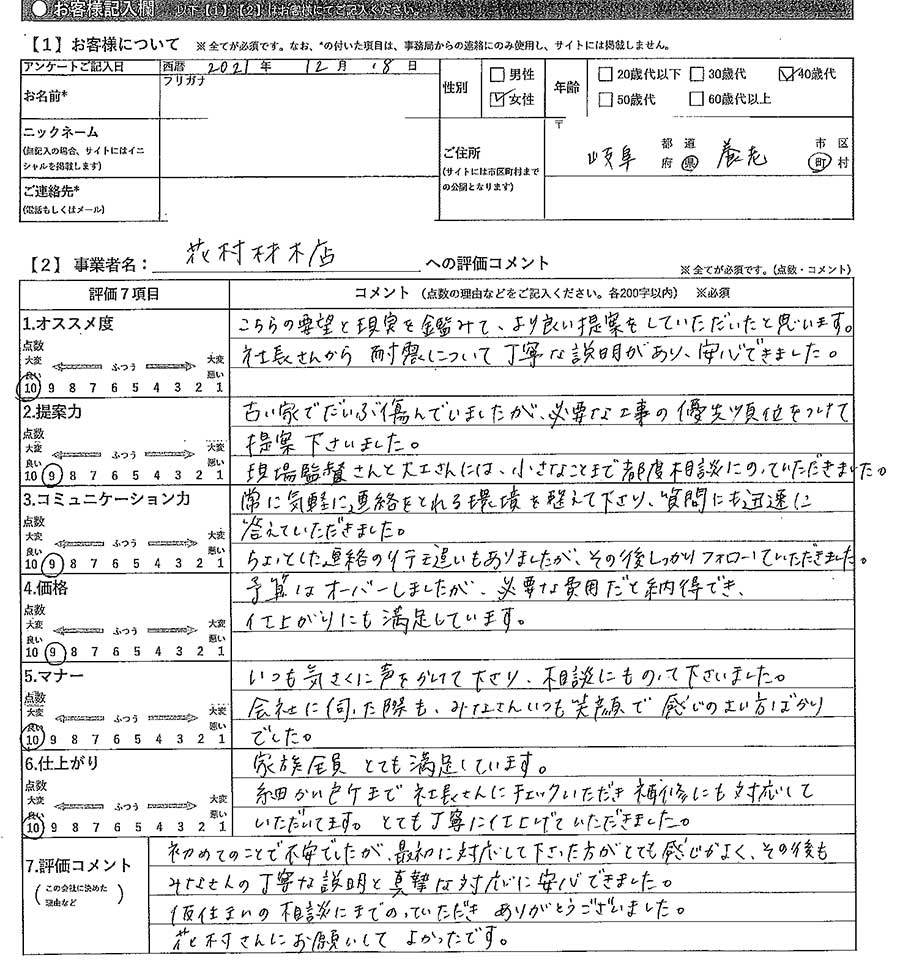 ●お客様記入欄 以下【1】【2】はお客様にてご記入ください。
【1】お客様について ※全てが必須です。なお、*の付いた項目は、事務局からの連絡にのみ使用し、サイトには掲載しません。
アンケートご記入日 西暦 2021年 12月 18日
フリガナ
お名前*
性別 □男性 ☑女性
年齢 □20歳代以下 □30歳代 ☑40歳代
□50歳代 □60歳代以上
ニックネーム
(無記入の場合、サイトにはイニ
シャルを掲載します)
ご連絡先*
(電話もしくはメール)
ご住所
(サイトには市区町村まで
の公開となります)
〒
岐阜 都道府県 養老 市区町村
【2】事業者名： 花村材木店 への評価コメント
※全てが必須です。(点数・コメント)
評価7項目 コメント (点数の理由などをご記入ください。各200字以内) ※必須
1.オススメ度
点数
大変良い ふつう 大変悪い
10 9 8 7 6 5 4 3 2 1
こちらの要望と現実を鑑みて、より良い提案をしていただいたと思います。
社長さんから耐震について丁寧な説明があり、安心できました。
2.提案力
点数
大変良い ふつう 大変悪い
10 9 8 7 6 5 4 3 2 1
古い家でだいぶ傷んでいましたが、必要な工事の優先順位をつけて
提案下さいました。
現場監督さんと大工さんには、小さなことまで都度相談にのっていただきました。
3.コミュニケーション力
点数
大変良い ふつう 大変悪い
10 9 8 7 6 5 4 3 2 1
常に気軽に連絡をとれる環境を整えて下さり、質問にも迅速に
答えていただきました。
ちょっとした連絡の行き違いもありましたが、その後しっかりフォローしていただきました。
4.価格
点数
大変良い ふつう 大変悪い
10 9 8 7 6 5 4 3 2 1
予算はオーバーしましたが、必要な費用だと納得でき、
仕上がりにも満足しています。
5.マナー
点数
大変良い ふつう 大変悪い
10 9 8 7 6 5 4 3 2 1
いつも気さくに声をかけて下さり、相談にものって下さいました。
会社に伺った際も、みなさんいつも笑顔で感じのよい方ばかり
でした。
6.仕上がり
点数
大変良い ふつう 大変悪い
10 9 8 7 6 5 4 3 2 1
家族全員とても満足しています。
細かい色ケまで社長さんにチェックいただき補修にも対応して
いただいてます。とても丁寧に仕上げていただきました。
7.評価コメント
(この会社に決めた
理由など)
初めてのことで不安でしたが、最初に対応して下さった方がとても感じがよく、その後も
みなさんの丁寧な説明と真摯な対応に安心できました。
仮住まいの相談にまでのっていただきありがとうございました。
花村さんにお願いしてよかったです。